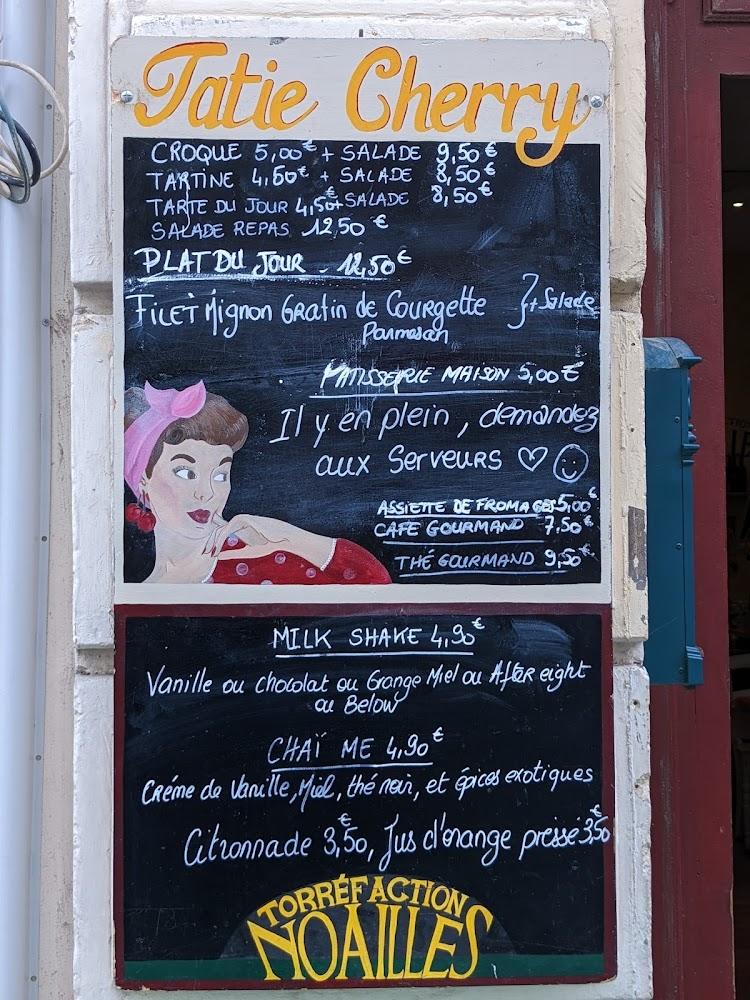 Tatie Cherry
CROQUE 5,00€ + SALADE 9,50€
TARTINE 4,50€ + SALADE 8,50€
TARTE DU JOUR 4,50€ + SALADE 8,50€
SALADE REPAS 12,50€
PLAT DU JOUR - 12,50€
FILET Mignon Gratin de Courgette } + Salade
Parmesan
PATISSERIE MAISON 5,00€
Il y en plein, demandez
aux Serveurs ♡ ☺
ASSIETTE DE FROMAGES 5,00€
CAFE GOURMAND 7,50€
THÉ GOURMAND 9,50€
MILK SHAKE 4,90€
Vanille ou chocolat ou Orange Miel ou After eight
ou Below
CHAÏ ME 4,90€
Créme de Vanille, Miel, thé noir, et épices exotiques
Citronnade 3,50€, Jus d'orange presse 3,50€
TORRÉFACTION
NOAILLES